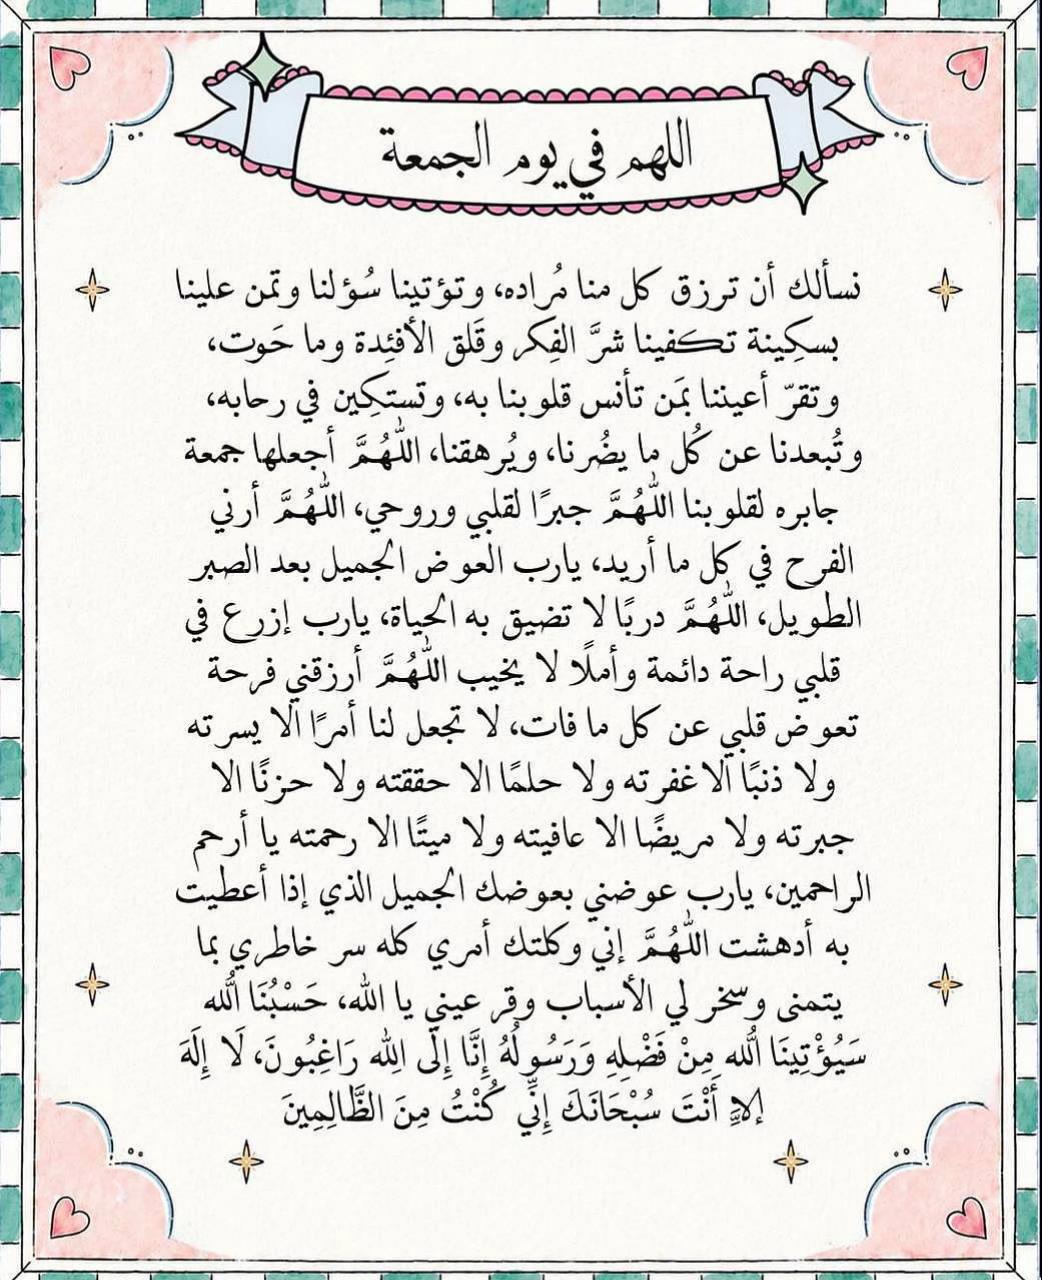 اللهم في يوم الجمعة
نسألك أن ترزق كل منا مُراده، وتؤتينا سُؤلنا وتمن علينا
بسكِينة تكفينا شرَّ الفِكر وقَلق الأفئِدة وما حَوت،
وتقرّ أعيننا بمَن تأنس قلوبنا به، وتستكِين في رحابه،
وتُبعدنا عن كُل ما يضُرنا، ويُرهقنا، اللهُمَّ أجعلها جمعة
جابره لقلوبنا اللهُمَّ جبرًا لقلبي وروحي، اللهُمَّ أرني
الفرح في كل ما أريد، يارب العوض الجميل بعد الصبر
الطويل، اللهُمَّ دربًا لا تضيق به الحياة، يارب إزرع في
قلبي راحة دائمة وأملًا لا يخيب اللهُمَّ أرزقني فرحة
تعوض قلبي عن كل ما فات، لا تجعل لنا أمرًا الا يسرته
ولا ذنبًا الا غفرته ولا حلمًا الا حققته ولا حزنًا الا
جبرته ولا مريضًا الا عافيته ولا ميتًا الا رحمته يا أرحم
الراحمين، يارب عوضني بعوضك الجميل الذي إذا أعطيت
به أدهشت اللهُمَّ إني وكلتك أمري كله سر خاطري بما
يتمنى وسخر لي الأسباب وقر عيني يا الله، حَسْبُنَا الله
سَيُؤْتِينَا الله مِنْ فَضْلِهِ وَرَسُولُهُ إِنَّا إِلَى الله رَاغِبُونَ، لَا إِلَهَ
إلاَّ أَنْتَ سُبْحَانَكَ إِنِّي كُنْتُ مِنَ الظَّالِمِينَ